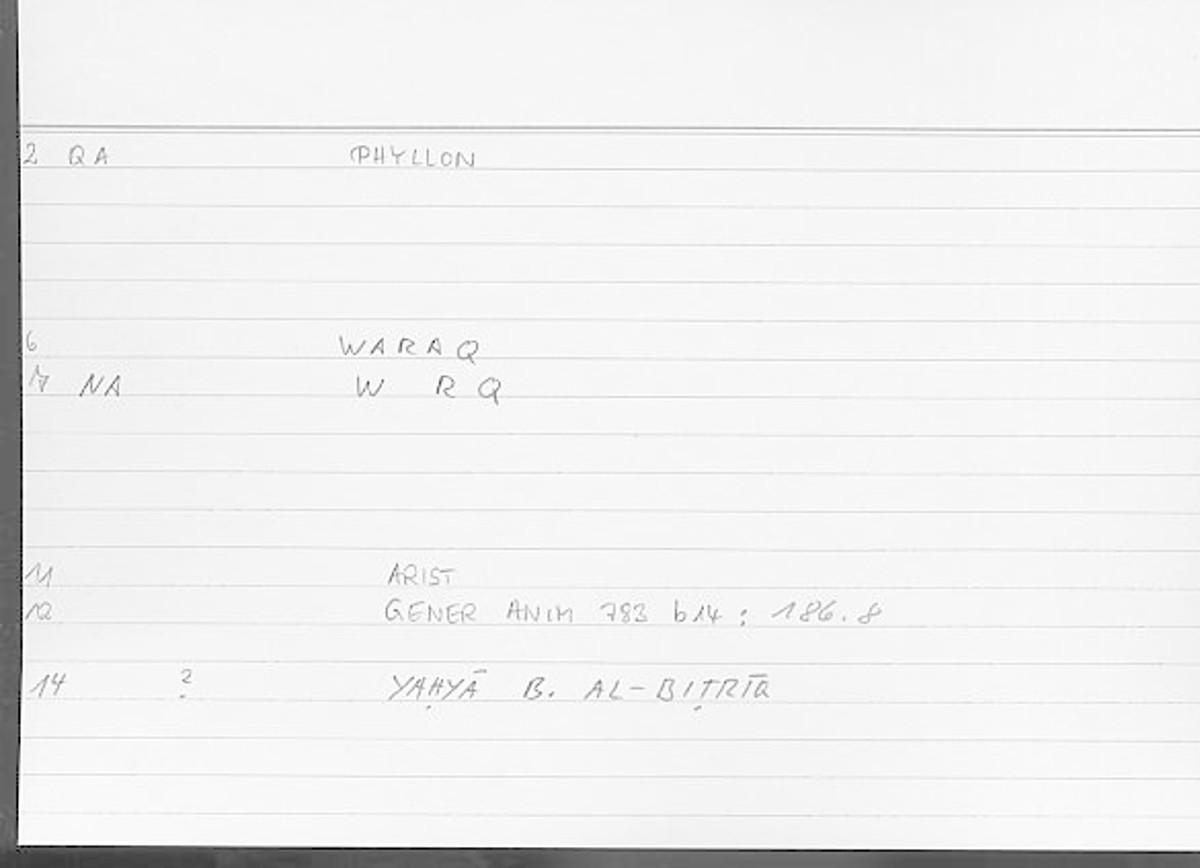 2 QA PHYLLON
6 WARAQ
7 NA W RQ
11 ARIST
12 GENER ANIM 783 b14 : 186.8
14 ? YAḤYĀ B. AL-BIṬRĪQ